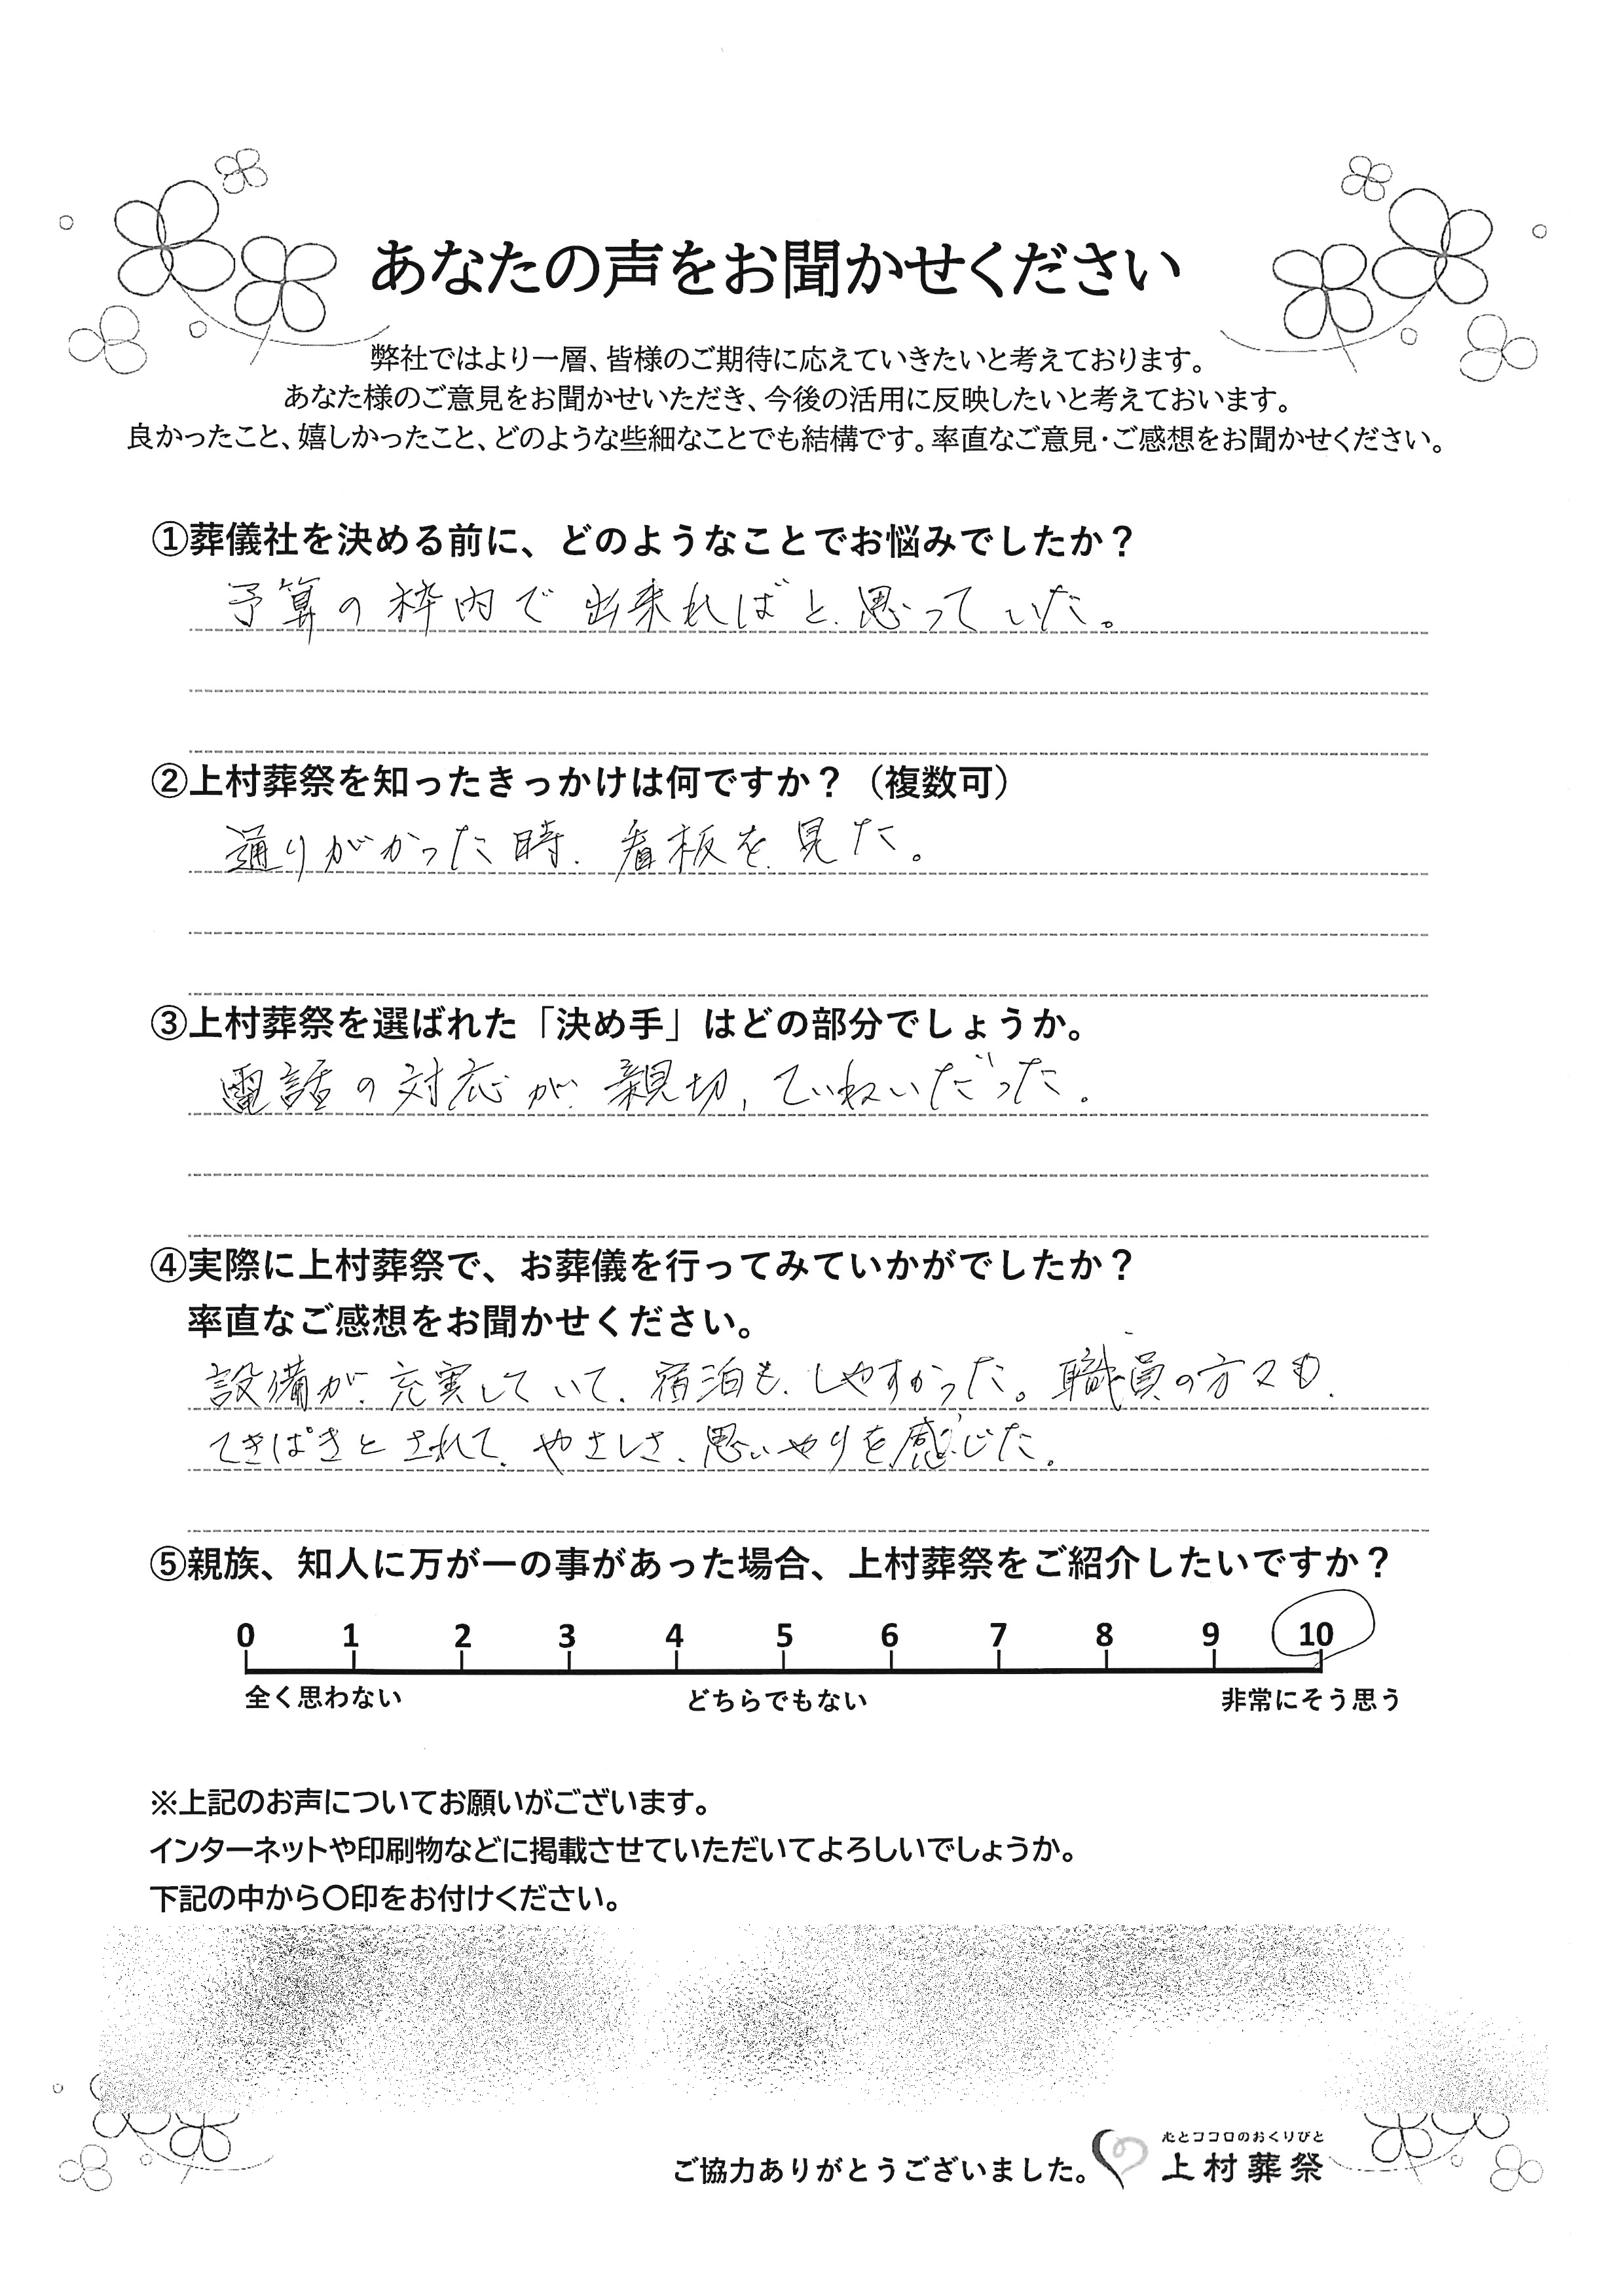 あなたの声をお聞かせください
弊社ではより一層、皆様のご期待に応えていきたいと考えております。
あなた様のご意見をお聞かせいただき、今後の活用に反映したいと考えておいます。
良かったこと、嬉しかったこと、どのような些細なことでも結構です。率直なご意見・ご感想をお聞かせください。
①葬儀社を決める前に、どのようなことでお悩みでしたか？
予算の枠内で出来ればと思っていた。
②上村葬祭を知ったきっかけは何ですか？（複数可）
通りがかった時、看板を見た。
③上村葬祭を選ばれた「決め手」はどの部分でしょうか。
電話の対応が親切、ていねいだった。
④実際に上村葬祭で、お葬儀を行ってみていかがでしたか？
率直なご感想をお聞かせください。
設備が充実していて、宿泊もしやすかった。職員の方々も、
てきぱきとされて、やさしさ、思いやりを感じた。
⑤親族、知人に万が一の事があった場合、上村葬祭をご紹介したいですか？
0 1 2 3 4 5 6 7 8 9 10
全く思わない どちらでもない 非常にそう思う
※上記のお声についてお願いがございます。
インターネットや印刷物などに掲載させていただいてよろしいでしょうか。
下記の中から〇印をお付けください。
心とココロのおくりびと
ご協力ありがとうございました。 上村葬祭